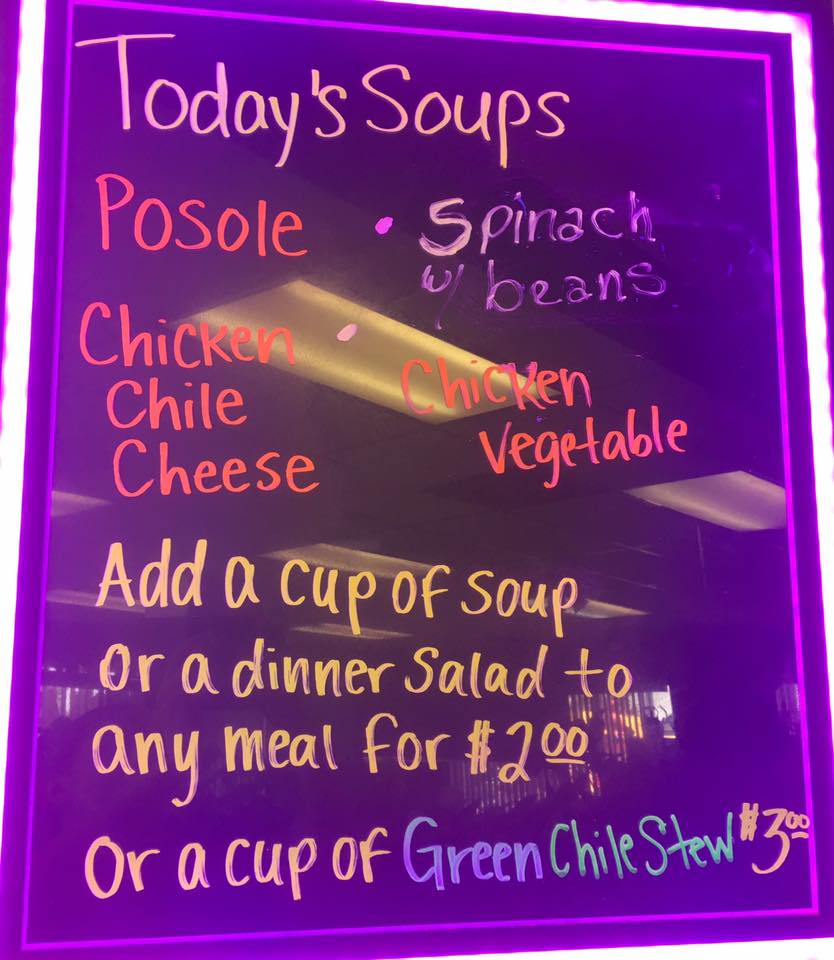 Today's Soups
Posole • Spinach
w/ beans
Chicken •
Chile
Cheese
Chicken
Vegetable
Add a cup of soup
or a dinner salad to
any meal for $2.00
Or a cup of Green Chile Stew $3.00